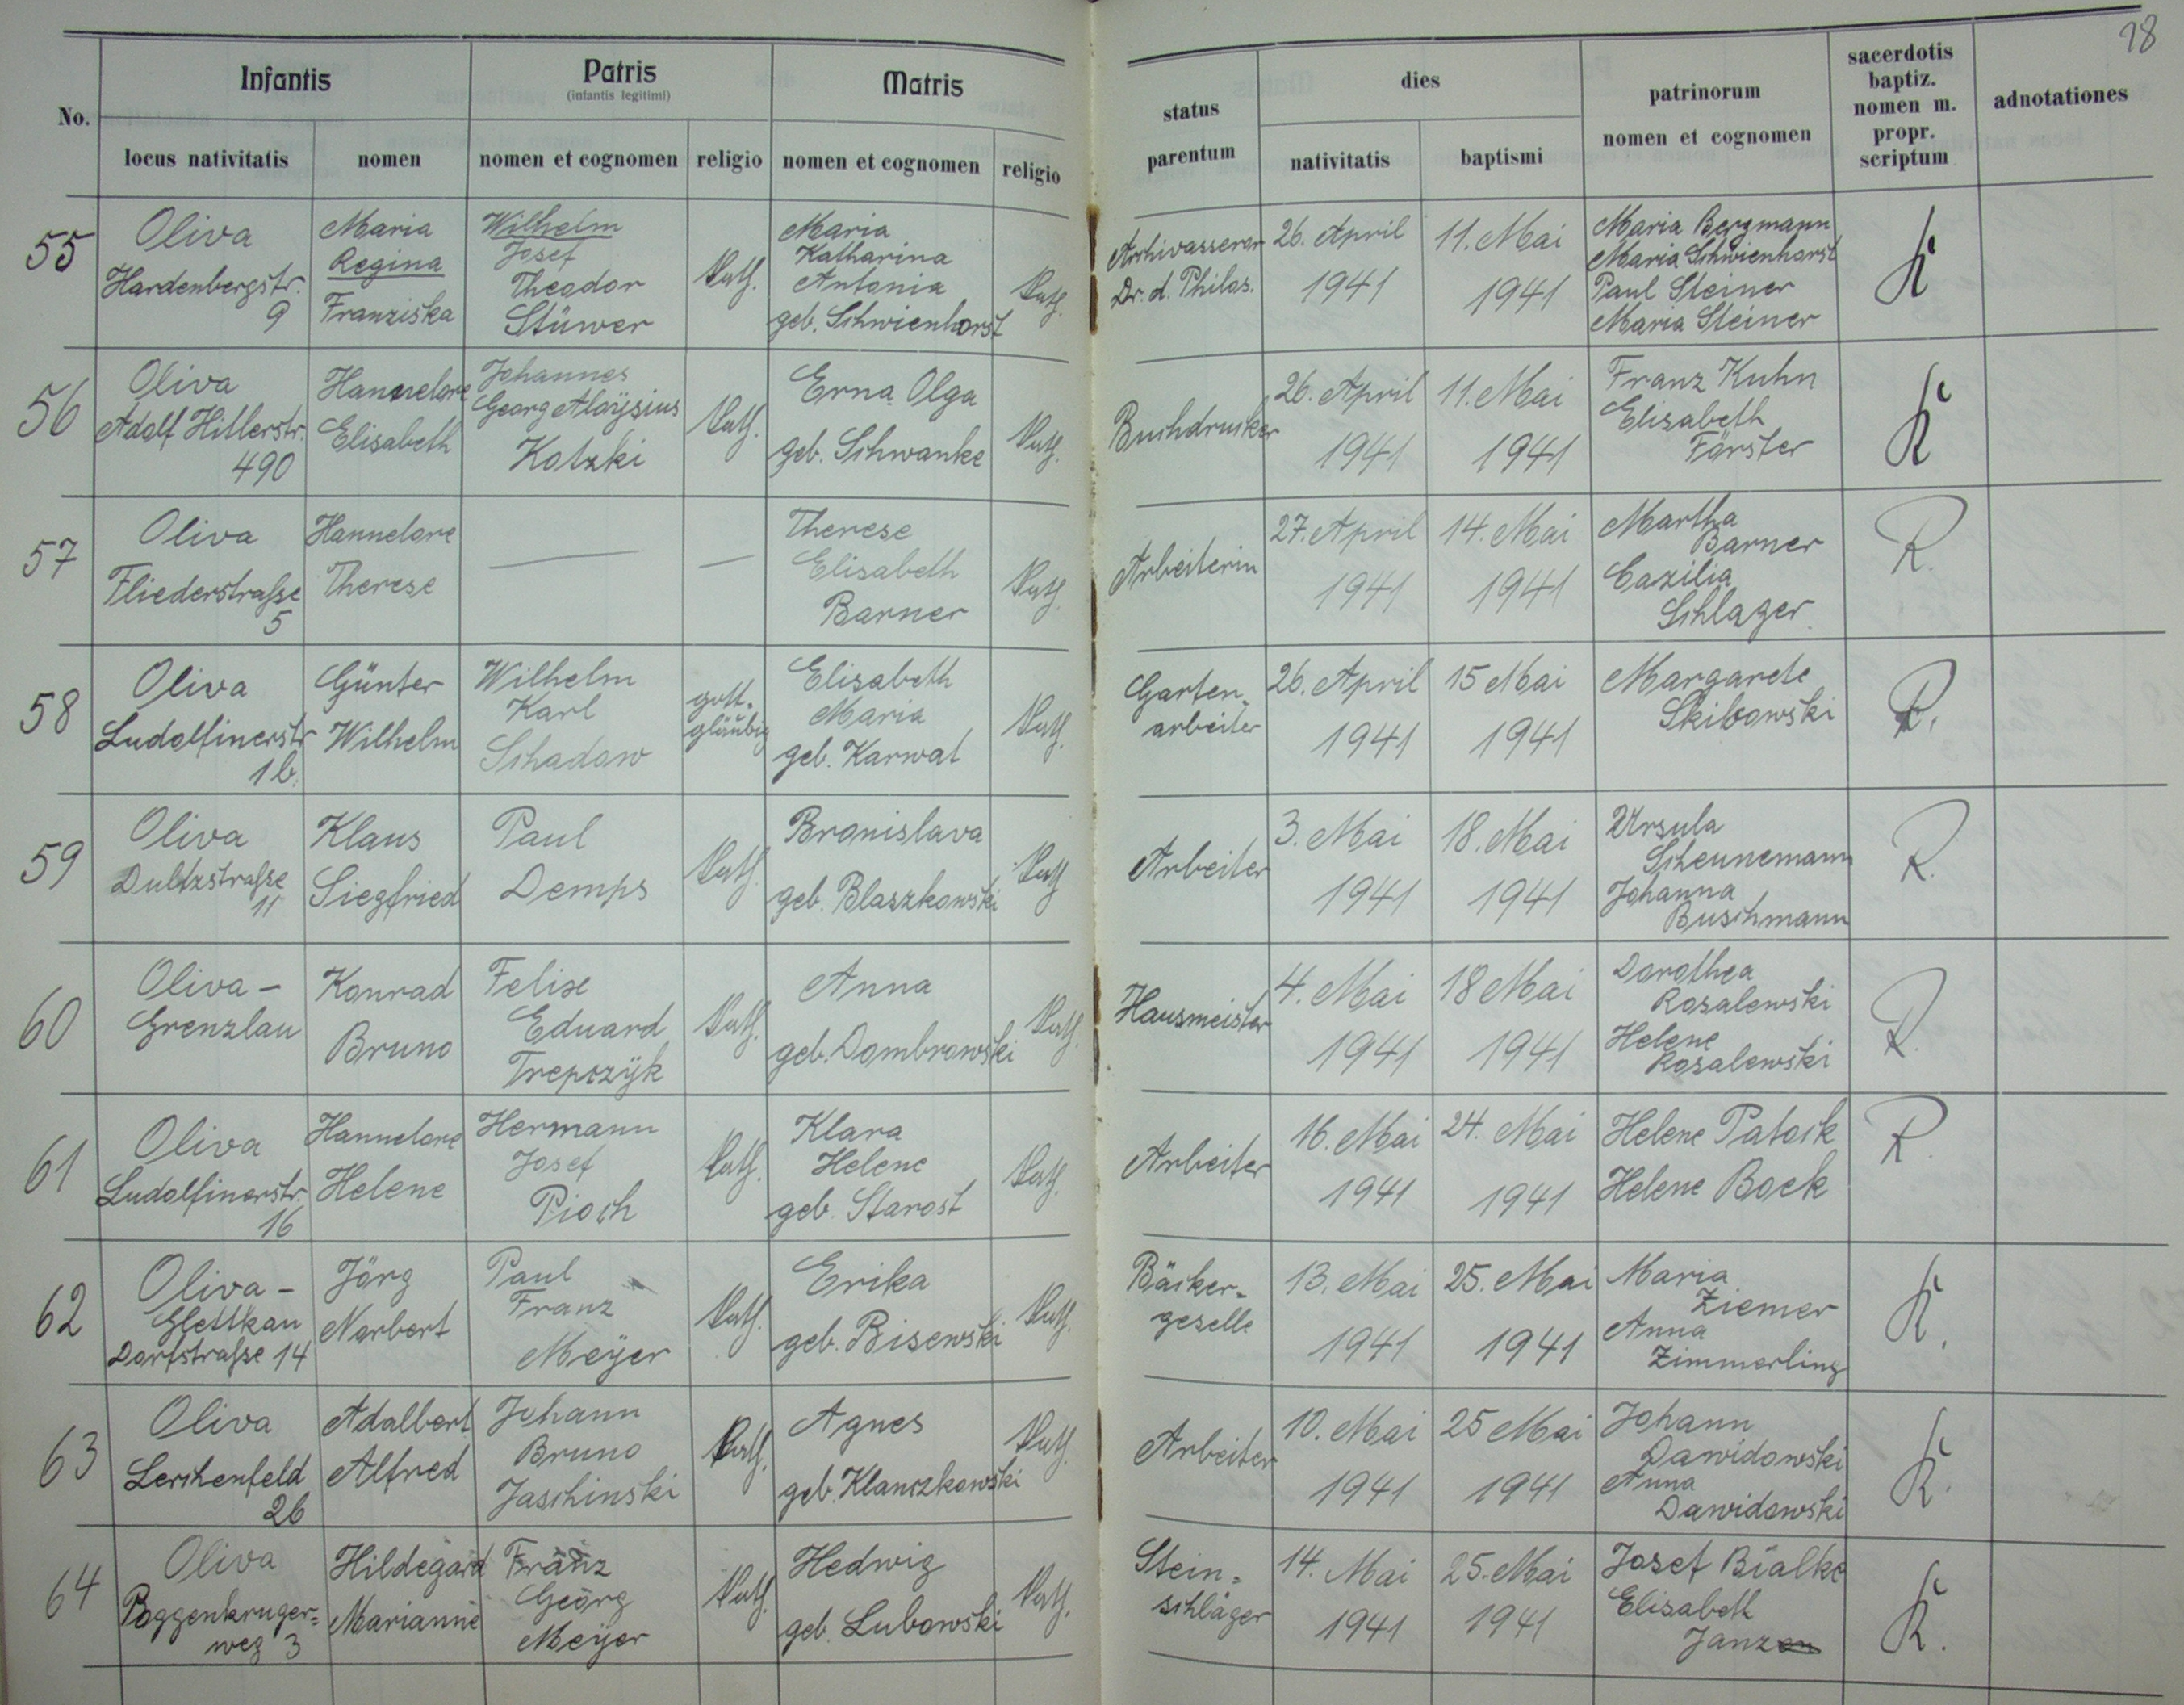 18
No.
Infantis
Patris
(infantis legitimi)
Matris
status
parentum
dies
patrinorum
nomen et cognomen
sacerdotis
baptiz.
nomen m.
propr.
scriptum
adnotationes
locus nativitatis
nomen
nomen et cognomen
religio
nomen et cognomen
religio
nativitatis
baptismi
55
Oliva
Hardenbergstr.
9
Maria
Regina
Franziska
Wilhelm
Josef
Theodor
Stüwer
Kath.
Maria
Katharina
Antonia
geb. Schwienhorst
Kath.
Archivassessor
Dr. d. Philos.
26. April
1941
11. Mai
1941
Maria Bergmann
Maria Schwienhorst
Paul Steiner
Maria Steiner
K
56
Oliva
Adolf Hitlerstr.
490
Hannelore
Elisabeth
Johannes
Georg Aloÿsius
Kotzki
Kath.
Erna Olga
geb. Schwanke
Kath.
Buchdrucker
26. April
1941
11. Mai
1941
Franz Kuhn
Elisabeth
Förster
K
57
Oliva
Fliederstraße
5
Hannelore
Therese
—
—
Therese
Elisabeth
Barner
Kath.
Arbeiterin
27. April
1941
14. Mai
1941
Martha
Barner
Cäzilia
Schlager
R.
58
Oliva
Ludolfinerstr
1b.
Günter
Wilhelm
Wilhelm
Karl
Schadow
gott-
gläubig
Elisabeth
Maria
geb. Karwat
Kath.
Garten-
arbeiter
26. April
1941
15 Mai
1941
Margarete
Skibowski
R.
59
Oliva
Dultzstraße
11
Klaus
Siegfried
Paul
Demps
Kath.
Bronislava
geb. Blaszkowski
Kath
Arbeiter
3. Mai
1941
18. Mai
1941
Ursula
Scheunemann
Johanna
Buschmann
R.
60
Oliva-
Grenzlau
Konrad
Bruno
Felix
Eduard
Trepczÿk
Kath.
Anna
geb. Dombrowski
Kath.
Hausmeister
4. Mai
1941
18 Mai
1941
Dorothea
Rosalewski
Helene
Rosalewski
R.
61
Oliva
Ludolfinerstr.
16
Hannelore
Helene
Hermann
Josef
Pioch
Kath.
Klara
Helene
geb. Starost
Kath.
Arbeiter
16. Mai
1941
24. Mai
1941
Helene Patock
Helene Bock
R.
62
Oliva-
Glettkau
Dorfstraße 14
Jörg
Norbert
Paul
Franz
Meÿer
Kath.
Erika
geb. Bisewski
Kath.
Bäcker-
geselle
13. Mai
1941
25. Mai
1941
Maria
Ziemer
Anna
Zimmerling
K.
63
Oliva
Lerchenfeld
26
Adalbert
Alfred
Johann
Bruno
Jaschinski
Kath.
Agnes
geb. Klanczkowski
Kath.
Arbeiter
10. Mai
1941
25 Mai
1941
Johann
Dawidowski
Anna
Dawidowski
K.
64
Oliva
Poggenkruger-
weg 3
Hildegard
Marianne
Franz
Georg
Meÿer
Kath.
Hedwig
geb. Lubowski
Kath.
Stein-
schläger
14. Mai
1941
25. Mai
1941
Josef Bialke
Elisabeth
Janzen
K.